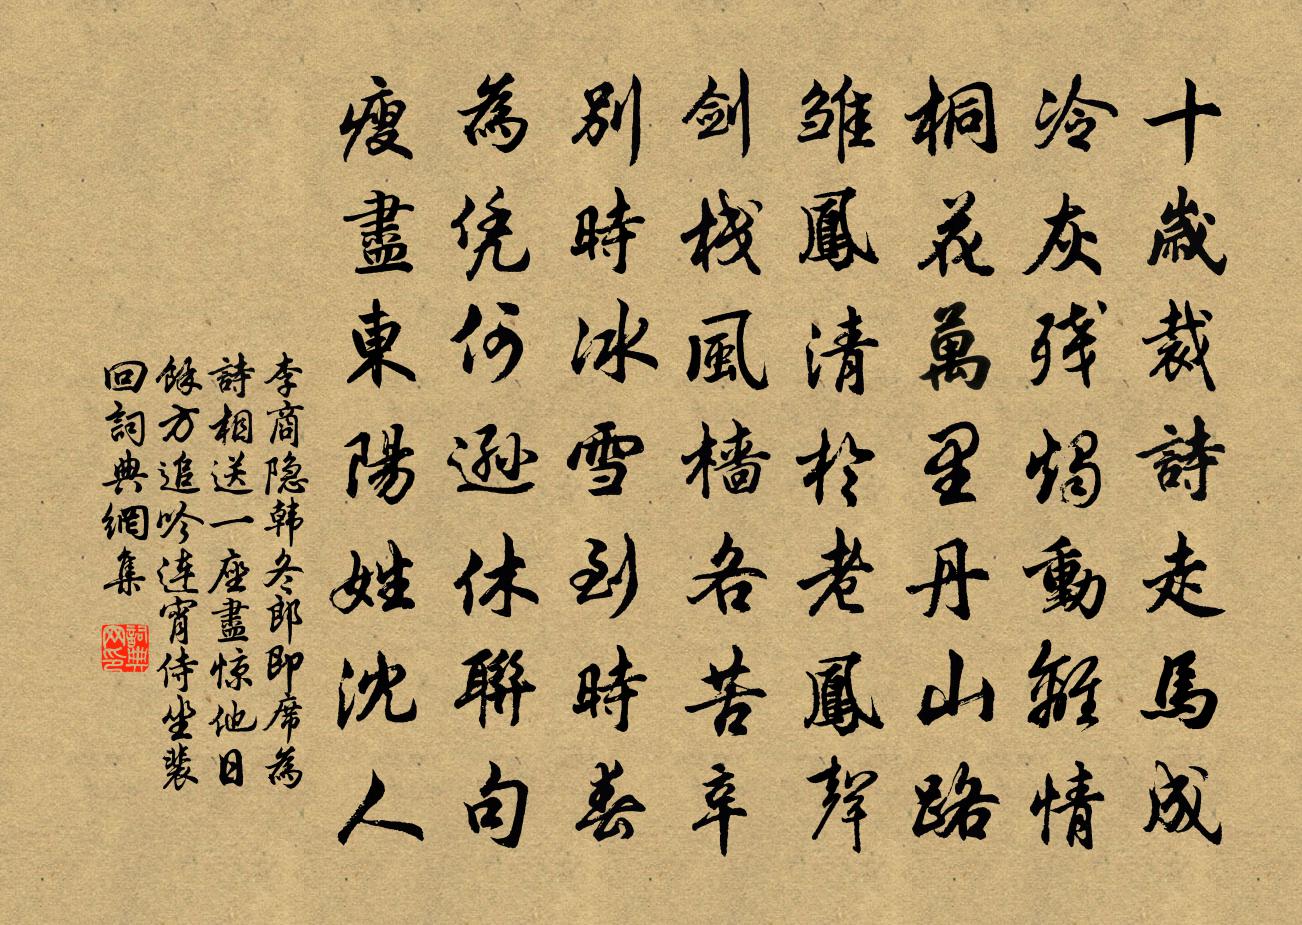 十歲裁詩走馬成
冷灰殘燭動離情
桐花萬里丹山路
雏鳳清於老鳳聲
劍棧風檣各苦辛
別時冰雪到時春
為凭何遜休聯句
瘦盡東陽姓沈人
李商隐韩冬郎即席為
詩相送一座盡惊他日
餘方追吟連宵侍坐裴
回詞典網集
詞典网印